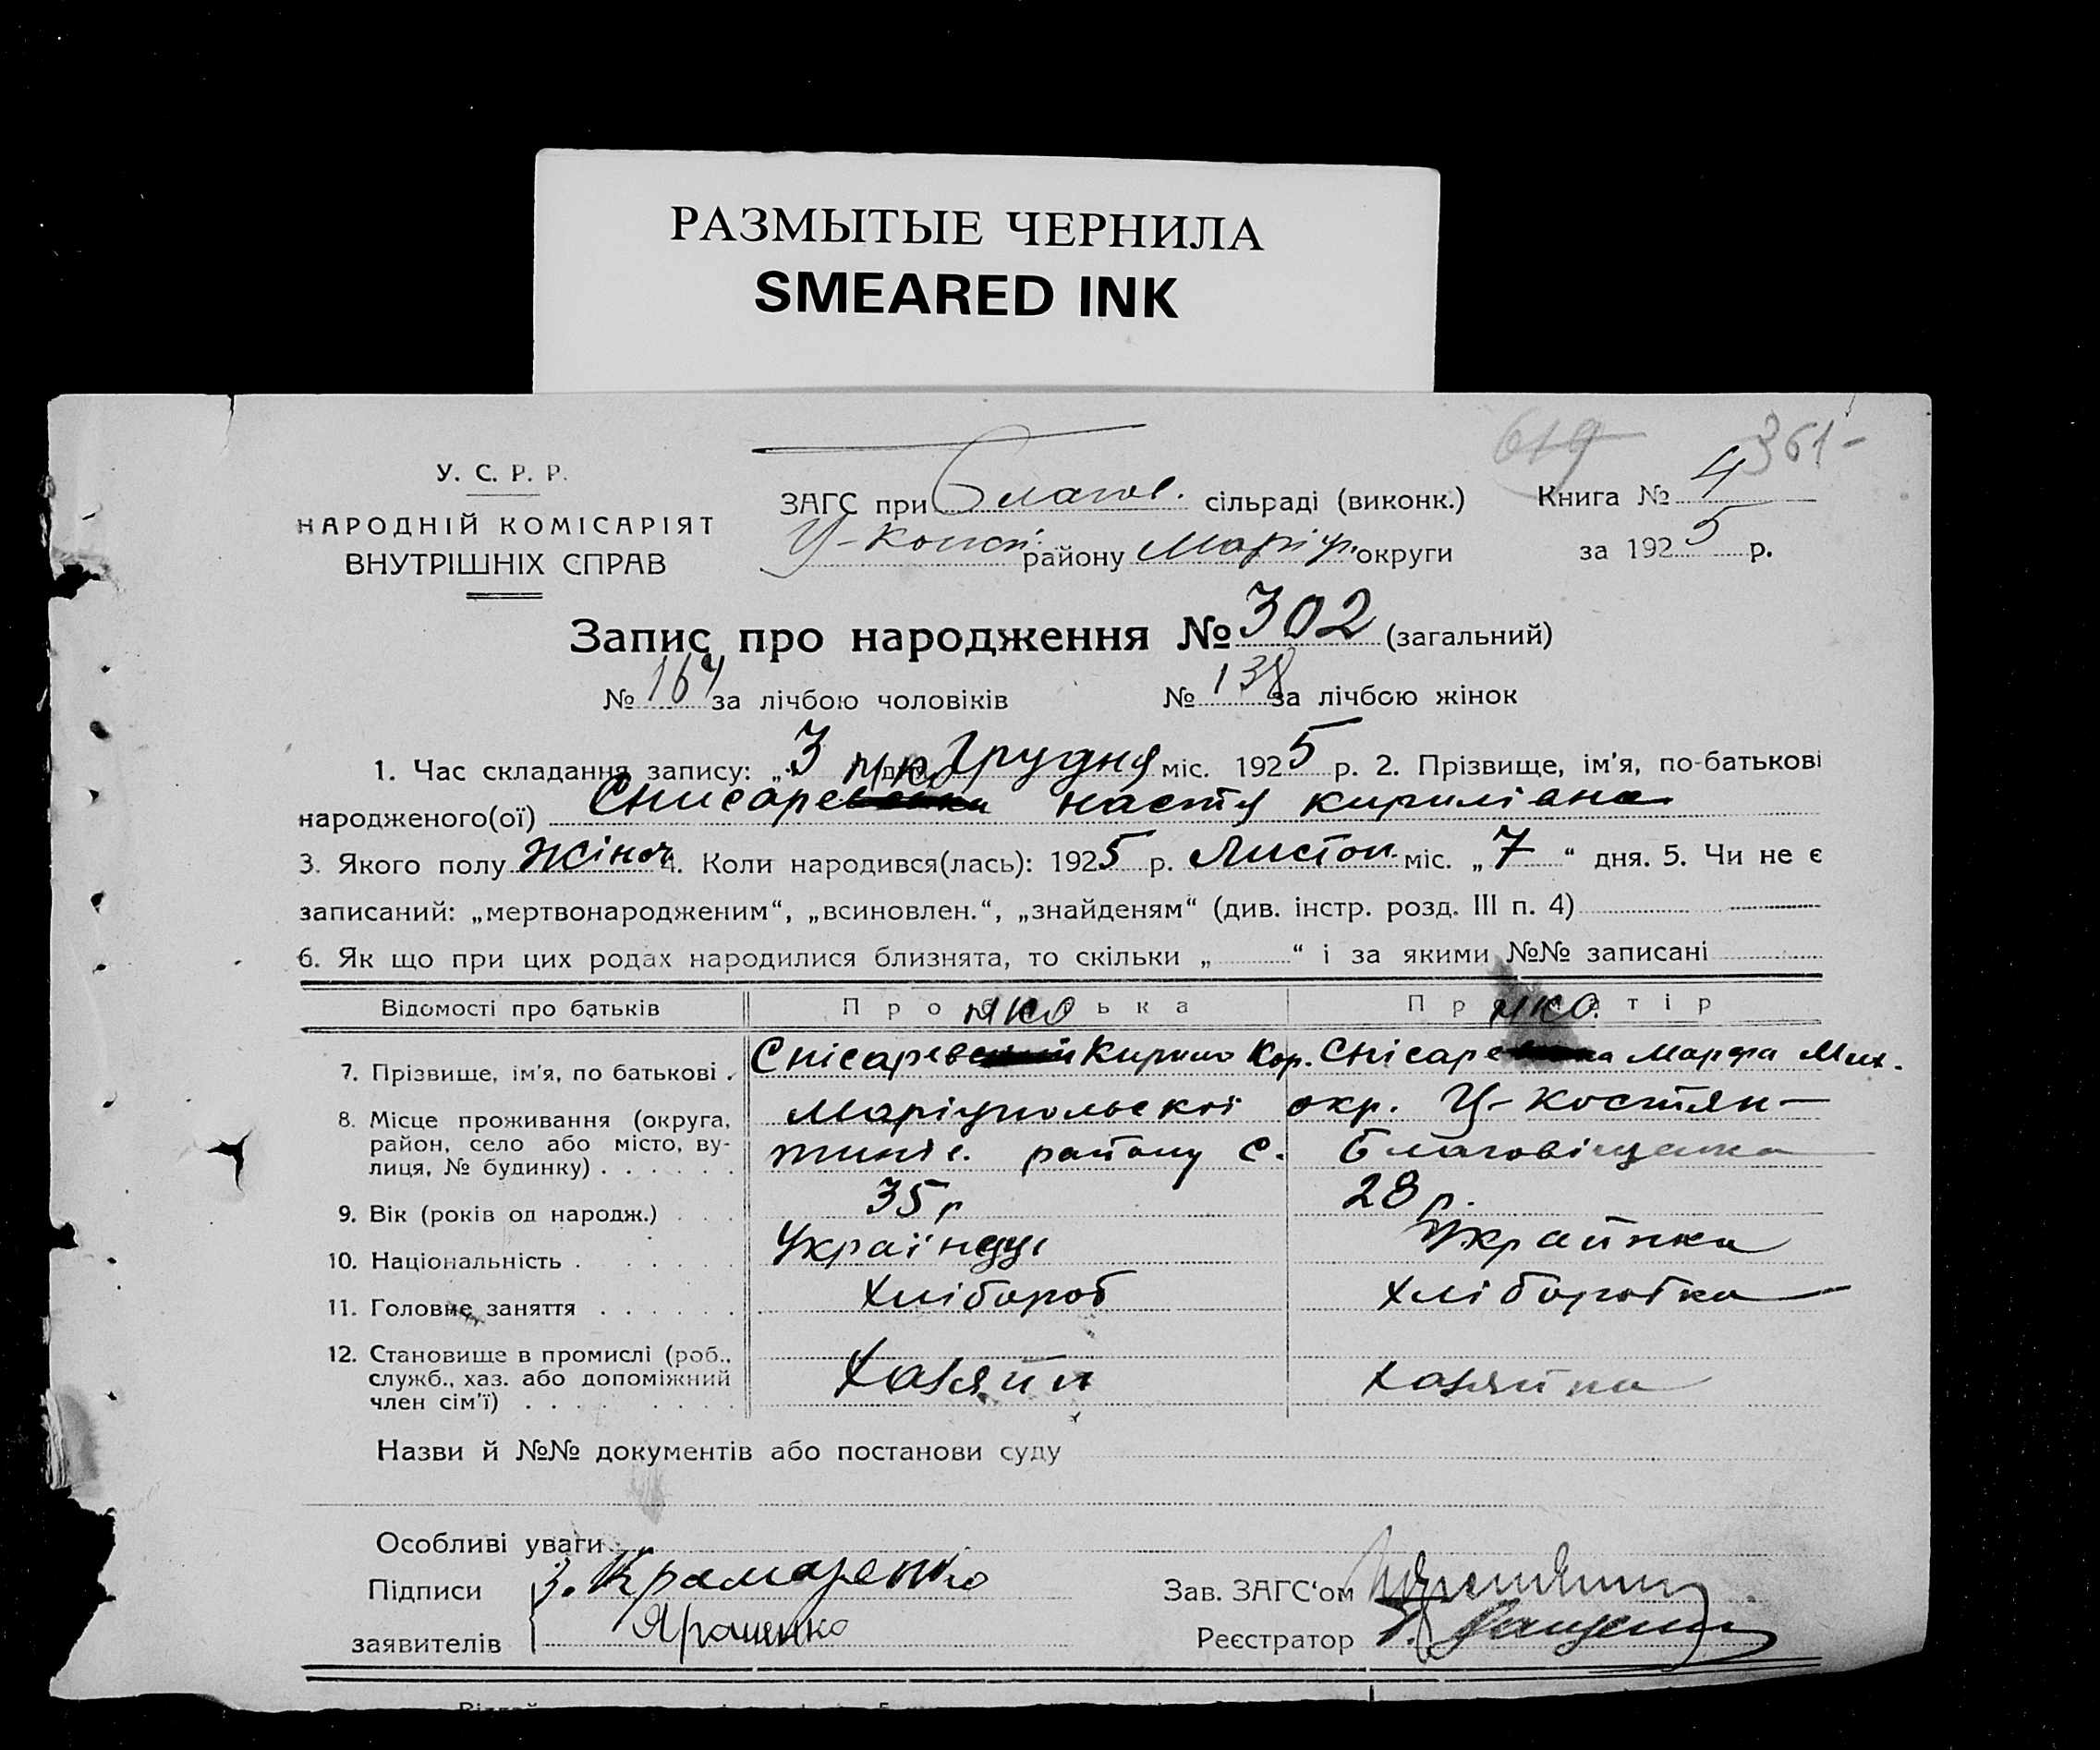 РАЗМЫТЫЕ ЧЕРНИЛА
SMEARED INK
619 361-
У. С. Р. Р.
НАРОДНІЙ КОМІСАРІЯТ
ВНУТРІШНІХ СПРАВ
ЗАГС при Благов. сільраді (виконк.) Книга № 4
У-Конст. району Маріуп. округи за 1925 р.
Запис про народження № 302 (загальний)
№ 164 за лічбою чоловіків № 138 за лічбою жінок
1. Час складання запису: „3 дня Грудня міс. 1925 р. 2. Прізвище, ім'я, по-батькові
нко
народженого(ої) Снисаре Настя Кирилівна
3. Якого полу Жіноч 4. Коли народився(лась): 1925 р. Листоп. міс. „7“ дня. 5. Чи не є
записаний: „мертвонародженим“, „всиновлен.“, „знайденям“ (див. інстр. розд. III п. 4)
6. Як що при цих родах народилися близнята, то скільки „ “ і за якими №№ записані
Відомості про батьків Про батька Про матір
нко нко.
7. Прізвище, ім'я, по батькові . Снісарев Кирило Кор. Снісаре Марфа Мих.
8. Місце проживання (округа, Маріупольскої окр. У-Костян-
район, село або місто, ву- тинів. району с. Благовіщенка
лиця, № будинку) . . . . . .
9. Вік (років од народж.) . . . 35 р 28 р.
10. Національність . . . . . . . Українець Українка
11. Головне заняття . . . . . . Хлібороб Хліборобка
12. Становище в промислі (роб.,
служб., хаз. або допоміжний Хазяйн Хазяйка
член сім'ї) . . . . . . . .
Назви й №№ документів або постанови суду
Особливі уваги
Підписи З. Крамаренко Зав. ЗАГС'ом
заявителів Ярошенко Реєстратор